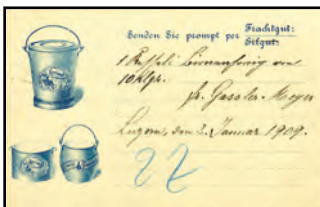 Senden Sie prompt per Frachtgut:
Eilgut:
1 Kesseli Bienenhonig von
10 Klgr.
Fr. Gassler-Meyer
Luzern, den 2. Januar 1909.
22